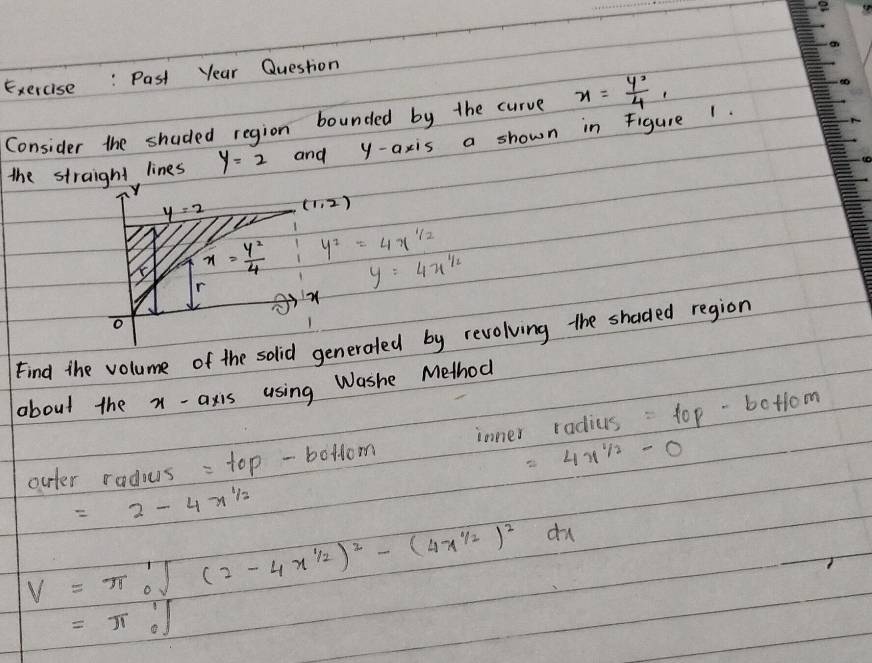 Exercise : Past Year Question
Consider the shaded region bounded by the curve x = y²/4 ,
the straight lines y = 2 and y-axis a shown in Figure 1.
y
y = 2
(1,2)
x = y²/4
y² = 4x^1/2
y = 4x^1/2
r
r
x
0
1
Find the volume of the solid generated by revolving the shaded region
about the x-axis using Washe Method
outer radius = top - bottom
= 2 - 4x^1/2
inner radius = top - bottom
= 4x^1/2 - 0
V = π ₀∫¹ (2 - 4x^1/2)² - (4x^1/2)² dx
= π ₀∫¹